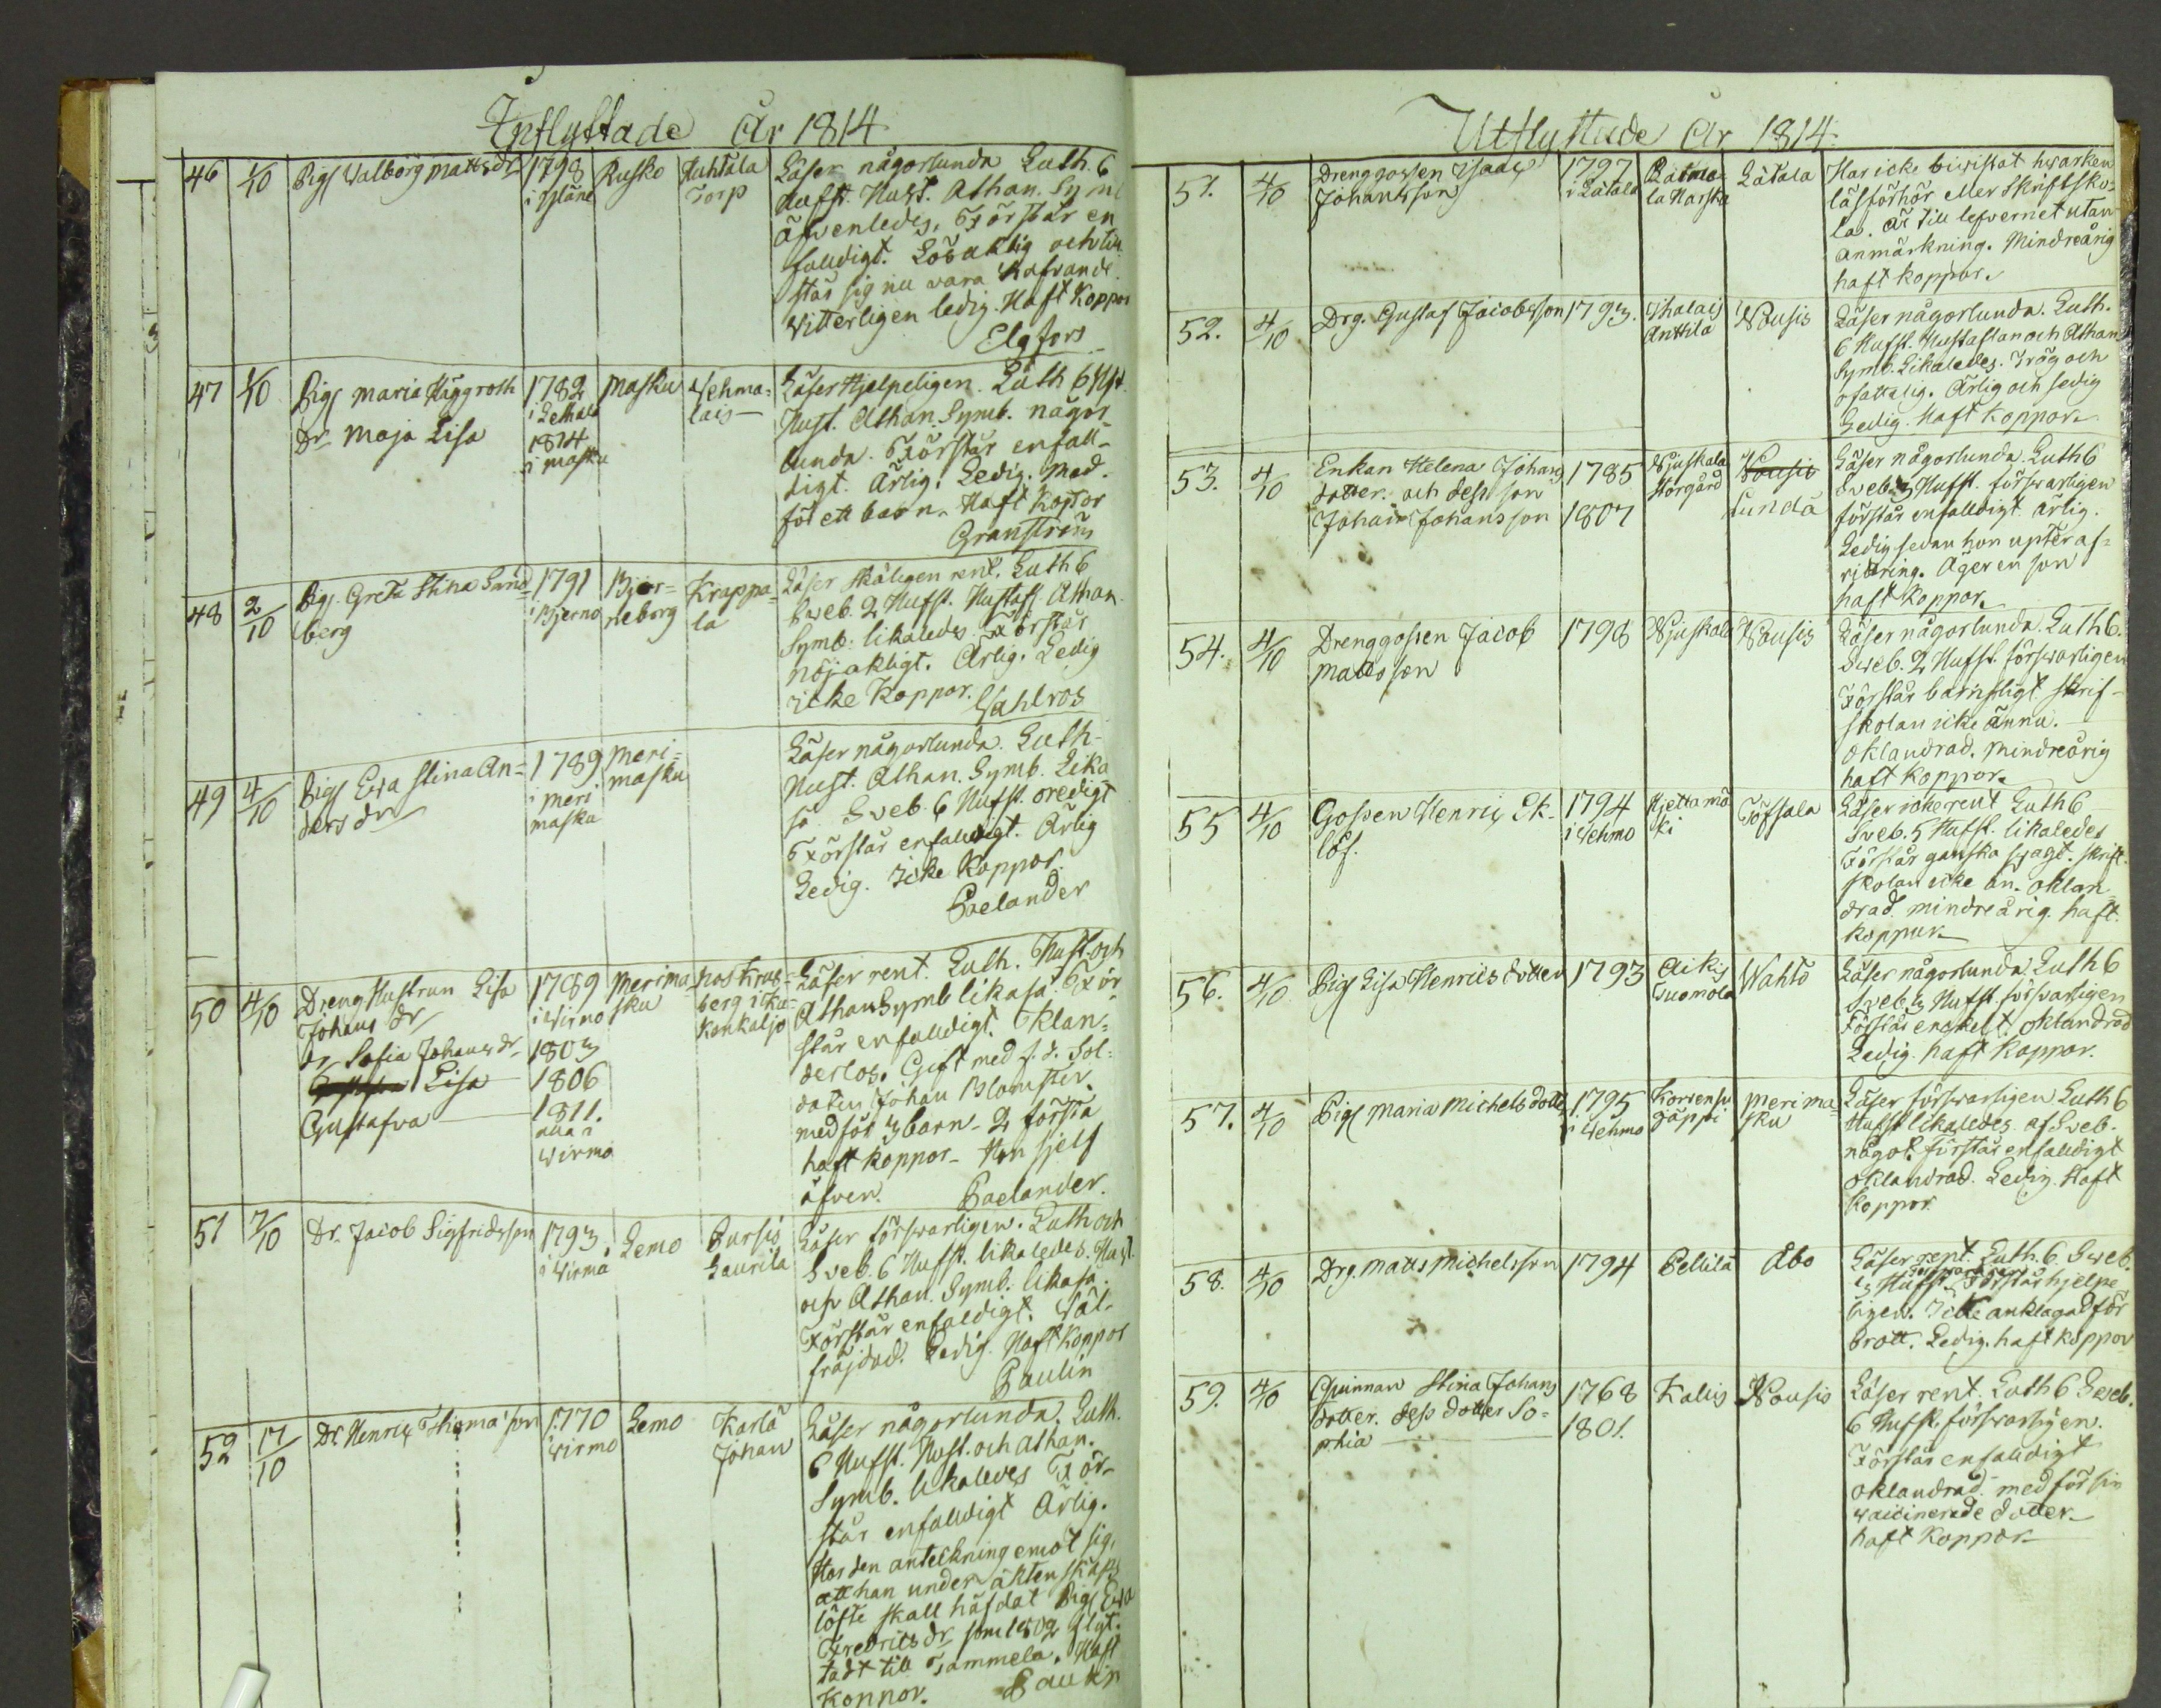 Inflyttade År 1814
46 1/10 Pig Walborg Mattsdr 1798 i Rusko Huhtala Torp Läser någorlunda Luth. 6
Hufst. Hust. Athan. Symb
äfvenledes. Förstår en
faldigt. 
står sig nu vara hafvande
Witterligen ledig. Haft Koppor
Elgfors
47 1/10 Pig Maria Häggroth 1782 i Lethala Masku Wehma=
lais Läser Hjelpeligen. Luth 6 Hfst.
Dr Maja Lisa 1814 i Masku
Hust. Athan. Symb. någor
lunda. Förstår enfall=
digt. Ärlig. Ledig. Med=
för ett barn. Haft Koppor
Granström
48 2/10 Pig. Greta Stina Sand=
berg 1791 i Bjerno Björ=
neborg Krappa=
la Läser skäligen rent. Luth 6
Sveb. 2 Hufst. Hustafl. Athan.
Symb. likaledes. Förstår
nöjaktigt. Ärlig. Ledig
icke Koppor. Wahlros
49 4/10 Pig Ewa Stina An=
ders dr 1789 i Meri
masku Meri=
masku Läser någorlunda. Luth
Hust. Athan. Symb. Lika
så Sveb. 6 Hufst. oredigt
Förstår enfaldigt. Ärlig
Ledig. Icke Koppor.
Paelander
50 4/10 Dreng Hustrun Lisa
Johans dr 1789 i Wirmo Merima=
sku hos Krus=
berg i Ku=
konkaljo Läser rent. Luth. Hust. och
Athan Symb likaså. För=
Dr Sofia Johans dr 1803
Lisa 1806
Gustafva 1811.
alla i
Wirmo
står enfaldigt. Oklan=
derlos. Gift med f. d. Sol=
daten Johan Blomster.
medför 3 barn. 2 första
haft koppor. Hon sjelf
äfven. Paelander.
51 7/10 Dr. Jacob Sigfridsson 1793. i Wirmo Lemo Pursis
Laurila Läser försvarligen. Luth och
Sveb. 6 Hufst. likaledes. Hust.
och Athan. Symb. likaså.
Förstår enfaldigt. Väl-
fräjdad. Ledig. Haft Koppor
Paulin
52 17/10 Dr. Henric Thomasson 1770 i Wirmo Lemo Karla
Johan Läser någorlunda. Luth.
6 Hufst. Hust. och Athan.
Symb. likaledes För-
står enfaldigt Ärlig.
Har den anteckning emot sig,
att han under äktenskaps
löfte skall häfdat Pig Ewa
Fredrics dr som 1802 flyt=
tadt till Tammela. Haft
Koppor. Paulin
Utflyttade År 1814.
51. 4/10 Drenggossen Isaac
Johansson 1797 i Lätala
la Harska Lätala Har icke biwistat hwarken
läsförhör eller Skriftsko=
la. Är till lefvernet utan
anmärkning. Mindreårig
haft koppor.
52. 4/10 Drg. Gustaf Jacobsson 1793. Ihalais
Anttila Nousis Läser någorlunda. Luth.
6 Hufst. Hustaflan och Athan.
Symb. Likaledes. Trög och
ofattelig. Ärlig och sedig
Ledig. Haft Koppor.
53. 4/10 Enkan Helena Johans
dotter. och dess son
Johan Johansson 1785
1807 Njuskala
Storgård Nousis
Lunda Läser någorlunda. Luth 6
Sveb. 3 Hufst. försvarligen
förstår enfalldigt ärlig.
Ledig sedan hon upter af=
vittring. Äger en son
haft koppor.
54. 4/10 Drenggossen Jacob
Mattsson 1798 Njuskala Nousis Läser någorlunda. Luth 6.
Sveb. 2 Hufst. försvarligen
Förstår barnsligt skrif=
skolan icke ännu.
Oklandrad. Mindreårig
haft Koppor.
55 4/10 Gossen Henric Ek=
löf. 1794 i Wehmo Hjettamä
ki Töfsala Läser icke rent Luth 6
Sveb. 5 Hufst. likaledes
Förstår ganska svagt. skrift
skolan icke än. Oklan=
drad. mindreårig. haft
koppor.
56. 4/10 Pig Lisa Henrics dotter 1793 Aikis
Wuomola Wahto Läser någorlunda. Luth 6
Sveb 3 Hufst. försvarligen
Förstår enckelt. Oklandrad
Ledig. haft Koppor.
57. 4/10 Pig Maria Michels dotter 1795 i Wehmo Korvensu
Jäppi Merima
sku Läser försvarligen Luth 6
Hufst likaledes af Sveb.
något. förstår enfalldigt
Oklandrad. Ledig. Haft
Koppor
58. 4/10 Drg. Matts Michelsson 1794 Pellila Åbo Läser rent. Luth. 6 Sveb.
3 Hufst. försvarligen. Förstår hjelpe
ligen. Icke anklagad för
brott. Ledig. haft koppor
59. 4/10 Quinnan Stina Johans
dotter. dess dotter So=
phia 1768
1801. Kalis Nousis Läser rent. Luth 6 Sveb.
6 Hufst. försvarligen.
Förstår enfalldigt
Oklandrad. medför sin
waccinerade dotter
haft Koppor